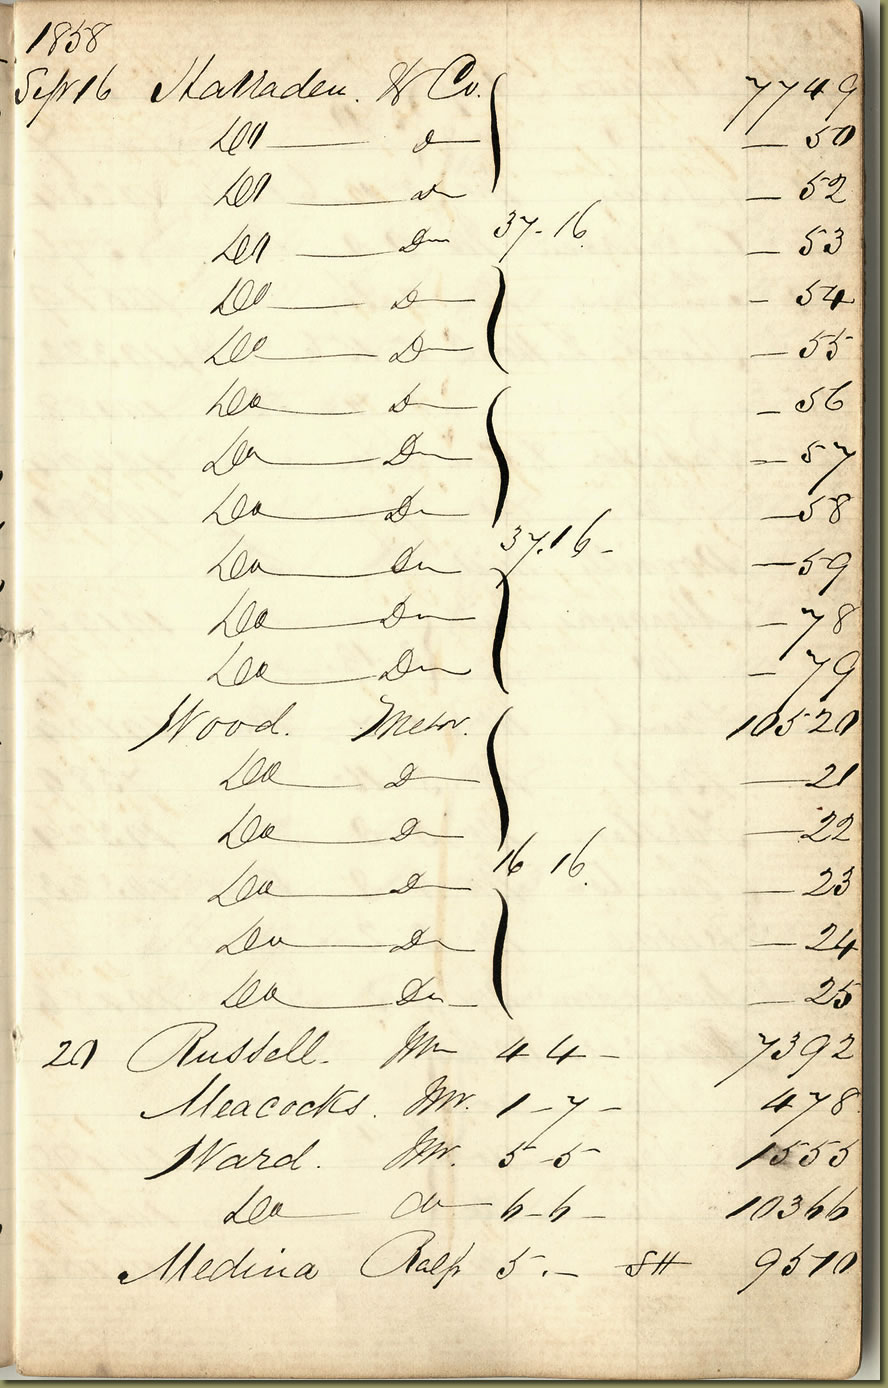 1858
Sepr 16 Harraden. & Co. 7749
Do — Do — 50
Do — Do — 52
Do — Do 37-16. — 53
Do — Do — 54
Do — Do — 55
Do — Do — 56
Do — Do — 57
Do — Do — 58
Do — Do 37.16- — 59
Do — Do — 78
Do — Do — 79
Wood. Messr. 10520
Do — Do — 21
Do — Do — 22
Do — Do 16 16. — 23
Do — Do — 24
Do — Do — 25
20 Russell. Mr 4 4 - 7392
Meacocks. Mr. 1-7- 478.
Ward. Mr. 5-5 1555
Do — Do — 6-6- 10366
Medina Ralp 5.- SH 9510